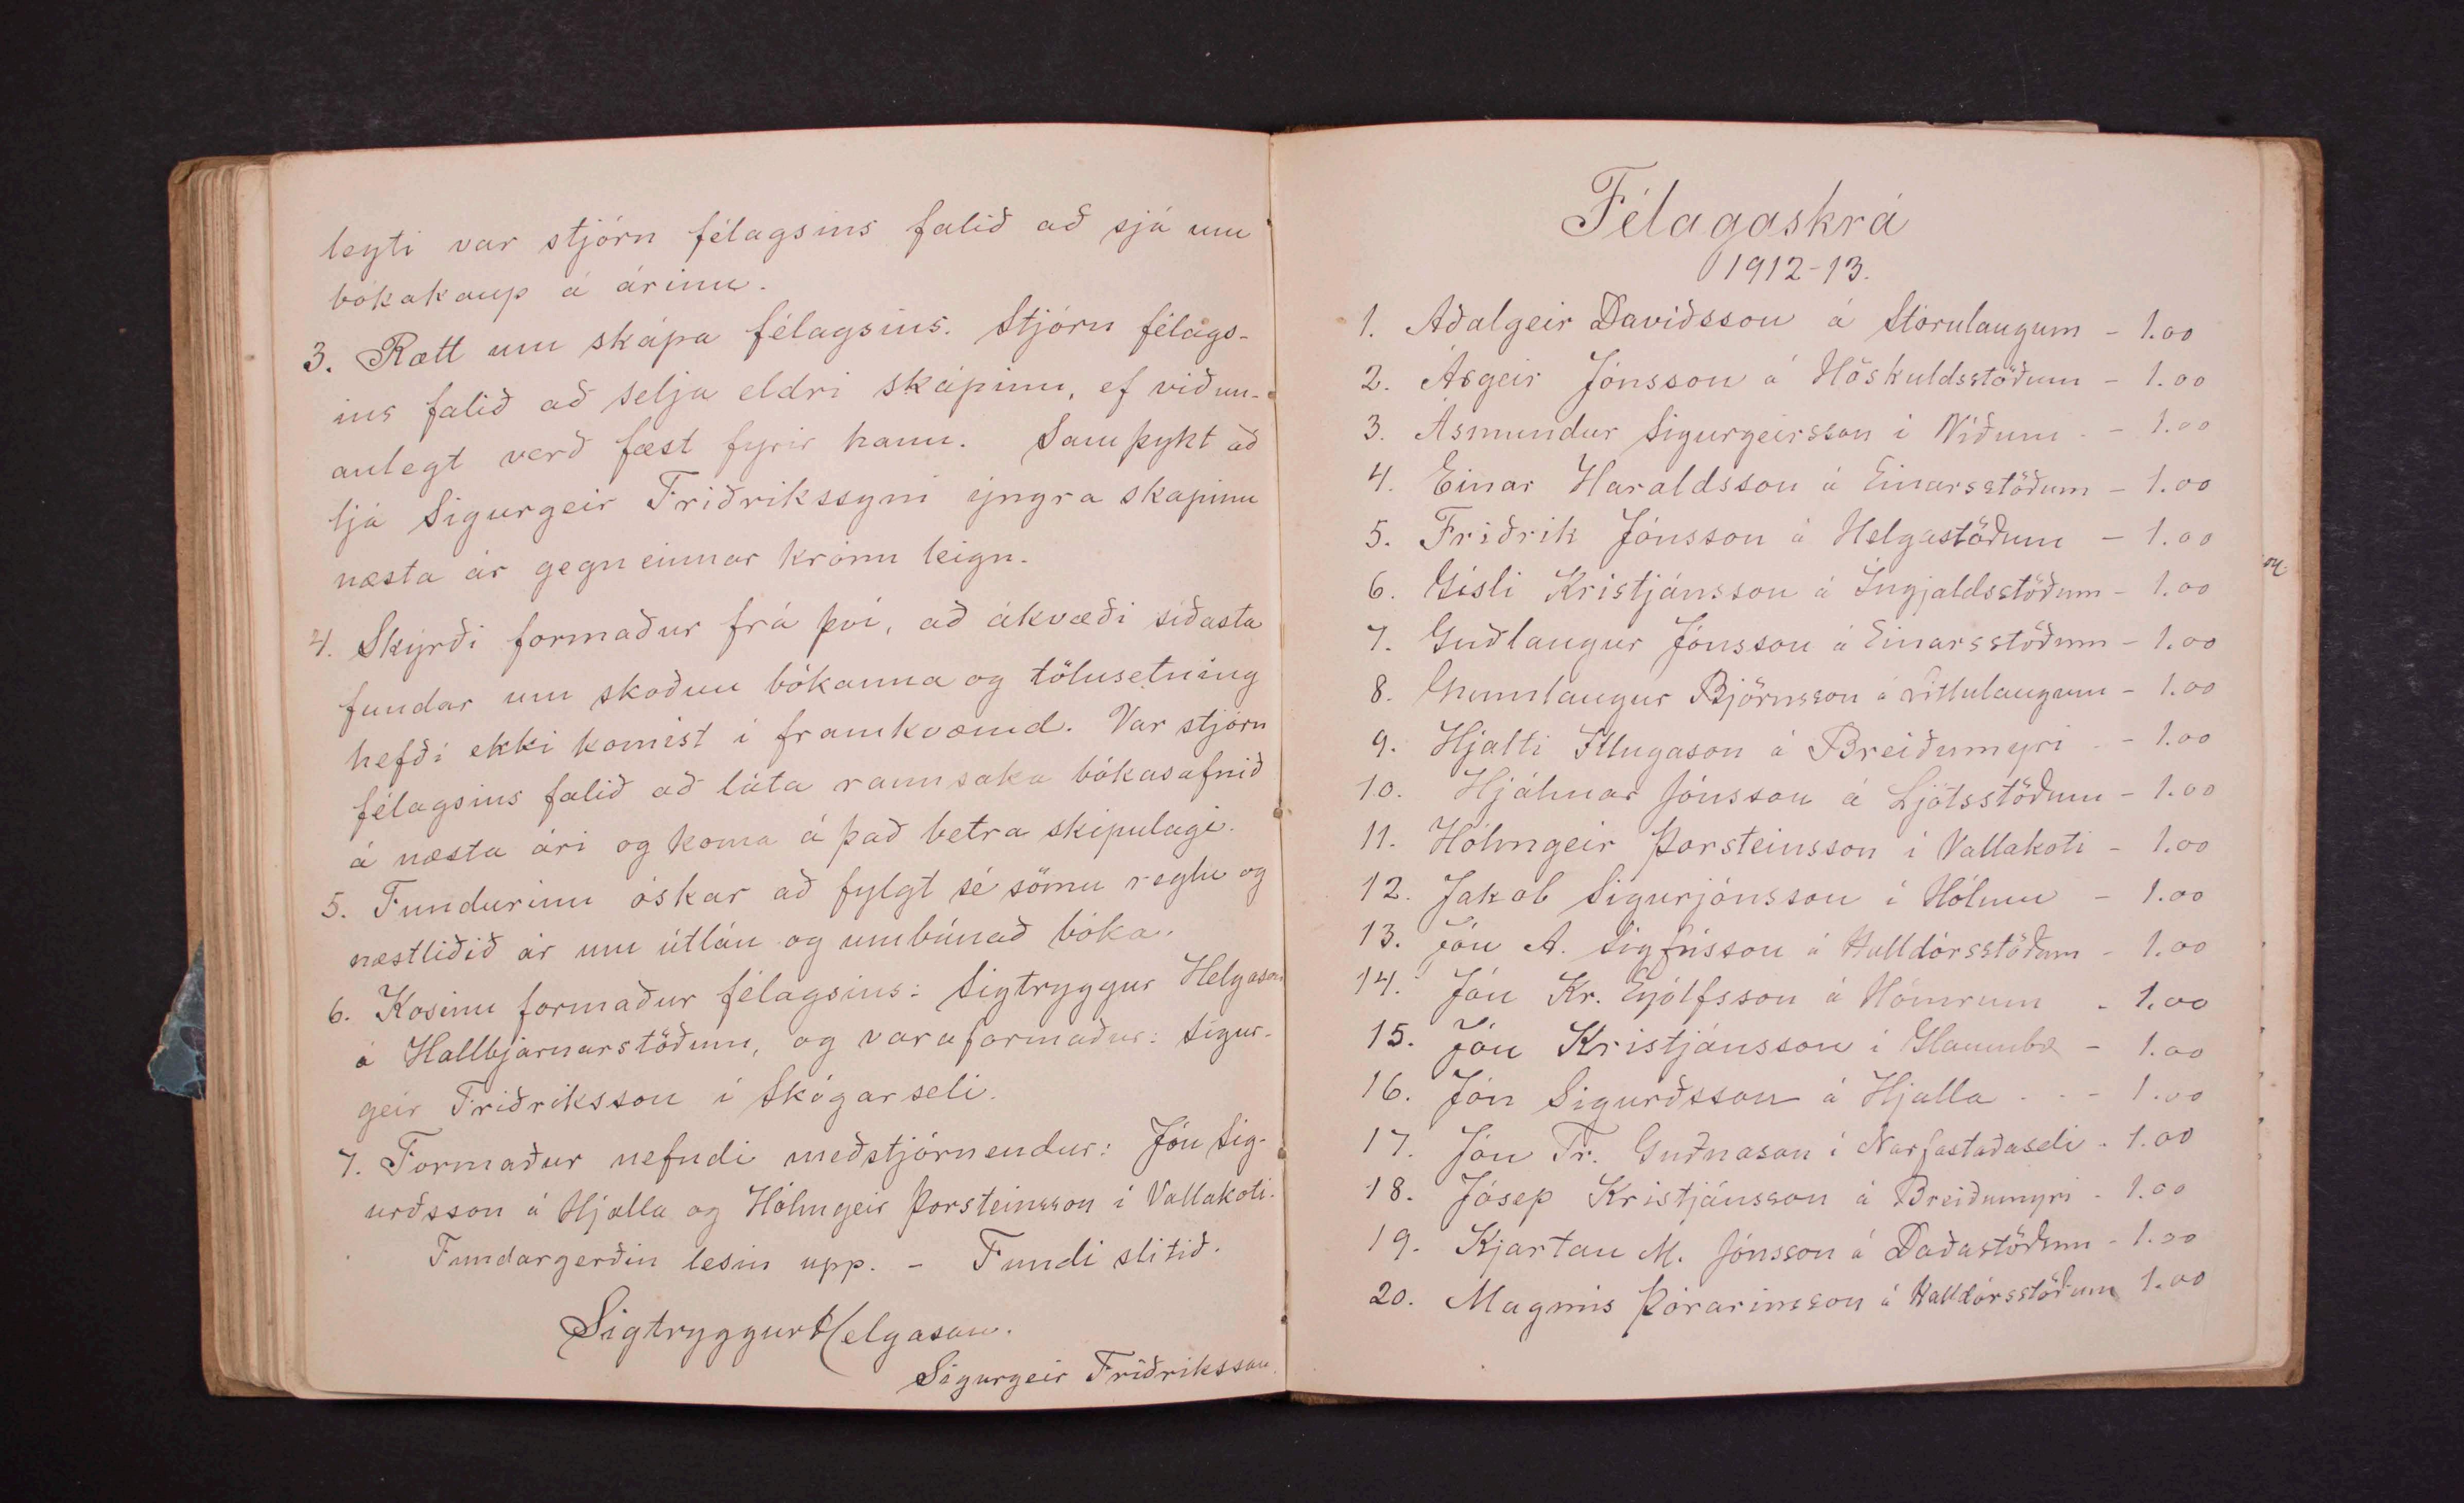 leyti var stjórn félagsins falið að sjá um
bókakaup á árinu.
3. Rætt um skápa félagsins. Stjórn félags-
ins falið að selja eldri skápinn, ef viðun-
anlegt verð fæst fyrir hann. Samþykt að
ljá Sigurgeir Friðrikssyni yngra skápinn
næsta ár gegn einnar krónu leigu.
4. Skýrði formaður frá því, að ákvæði síðasta
fundar um skoðun bókanna og tölusetning
hefði ekki komist í framkvæmd. Var stjórn
félagsins falið að láta rannsaka bókasafnið
á næsta ári og koma á það betra skipulagi.
5. Fundurinn óskar að fylgt sé sömu reglu og
næstliðið ár um útlán og umbúnað bóka.
6. Kosinn formaður félagsins: Sigtryggur Helgason
á Hallbjarnarstöðum, og varaformaður: Sigur-
geir Friðriksson í Skógarseli.
7. Formaður nefndi meðstjórnendur: Jón Sig-
urðsson á Hjalla og Hólmgeir Þorsteinsson í Vallakoti.
Fundargerðin lesin upp. - Fundi slitið.
Sigtryggur Helgason.
Sigurgeir Friðriksson.
Félagaskrá
1912-13.
1. Aðalgeir Davíðsson á Stórulaugum - 1.00
2. Ásgeir Jónsson á Höskuldsstöðum - 1.00
3. Ásmundur Sigurgeirsson í Víðum - 1.00
4. Einar Haraldsson á Einarsstöðum - 1.00
5. Friðrik Jónsson á Helgastöðum - 1.00
6. Gísli Kristjánsson á Ingjaldsstöðum - 1.00
7. Guðlaugur Jónsson á Einarsstöðum - 1.00
8. Gunnlaugur Björnsson á Litlulaugum - 1.00
9. Hjalti Illugason á Breiðumýri - 1.00
10. Hjálmar Jónsson á Ljótsstöðum - 1.00
11. Hólmgeir Þorsteinsson í Vallakoti - 1.00
12. Jakob Sigurjónsson í Hólum - 1.00
13. Jón A. Sigfússon á Halldórsstöðum - 1.00
14. Jón Kr. Eyjólfsson á Hömrum - 1.00
15. Jón Kristjánsson í Glaumbæ - 1.00
16. Jón Sigurðsson á Hjalla - 1.00
17. Jón Fr. Guðnason í Narfastaðaseli - 1.00
18. Jósep Kristjánsson á Breiðumýri - 1.00
19. Kjartan M. Jónsson á Daðastöðum - 1.00
20. Magnús Þórarinsson á Halldórsstöðum 1.00